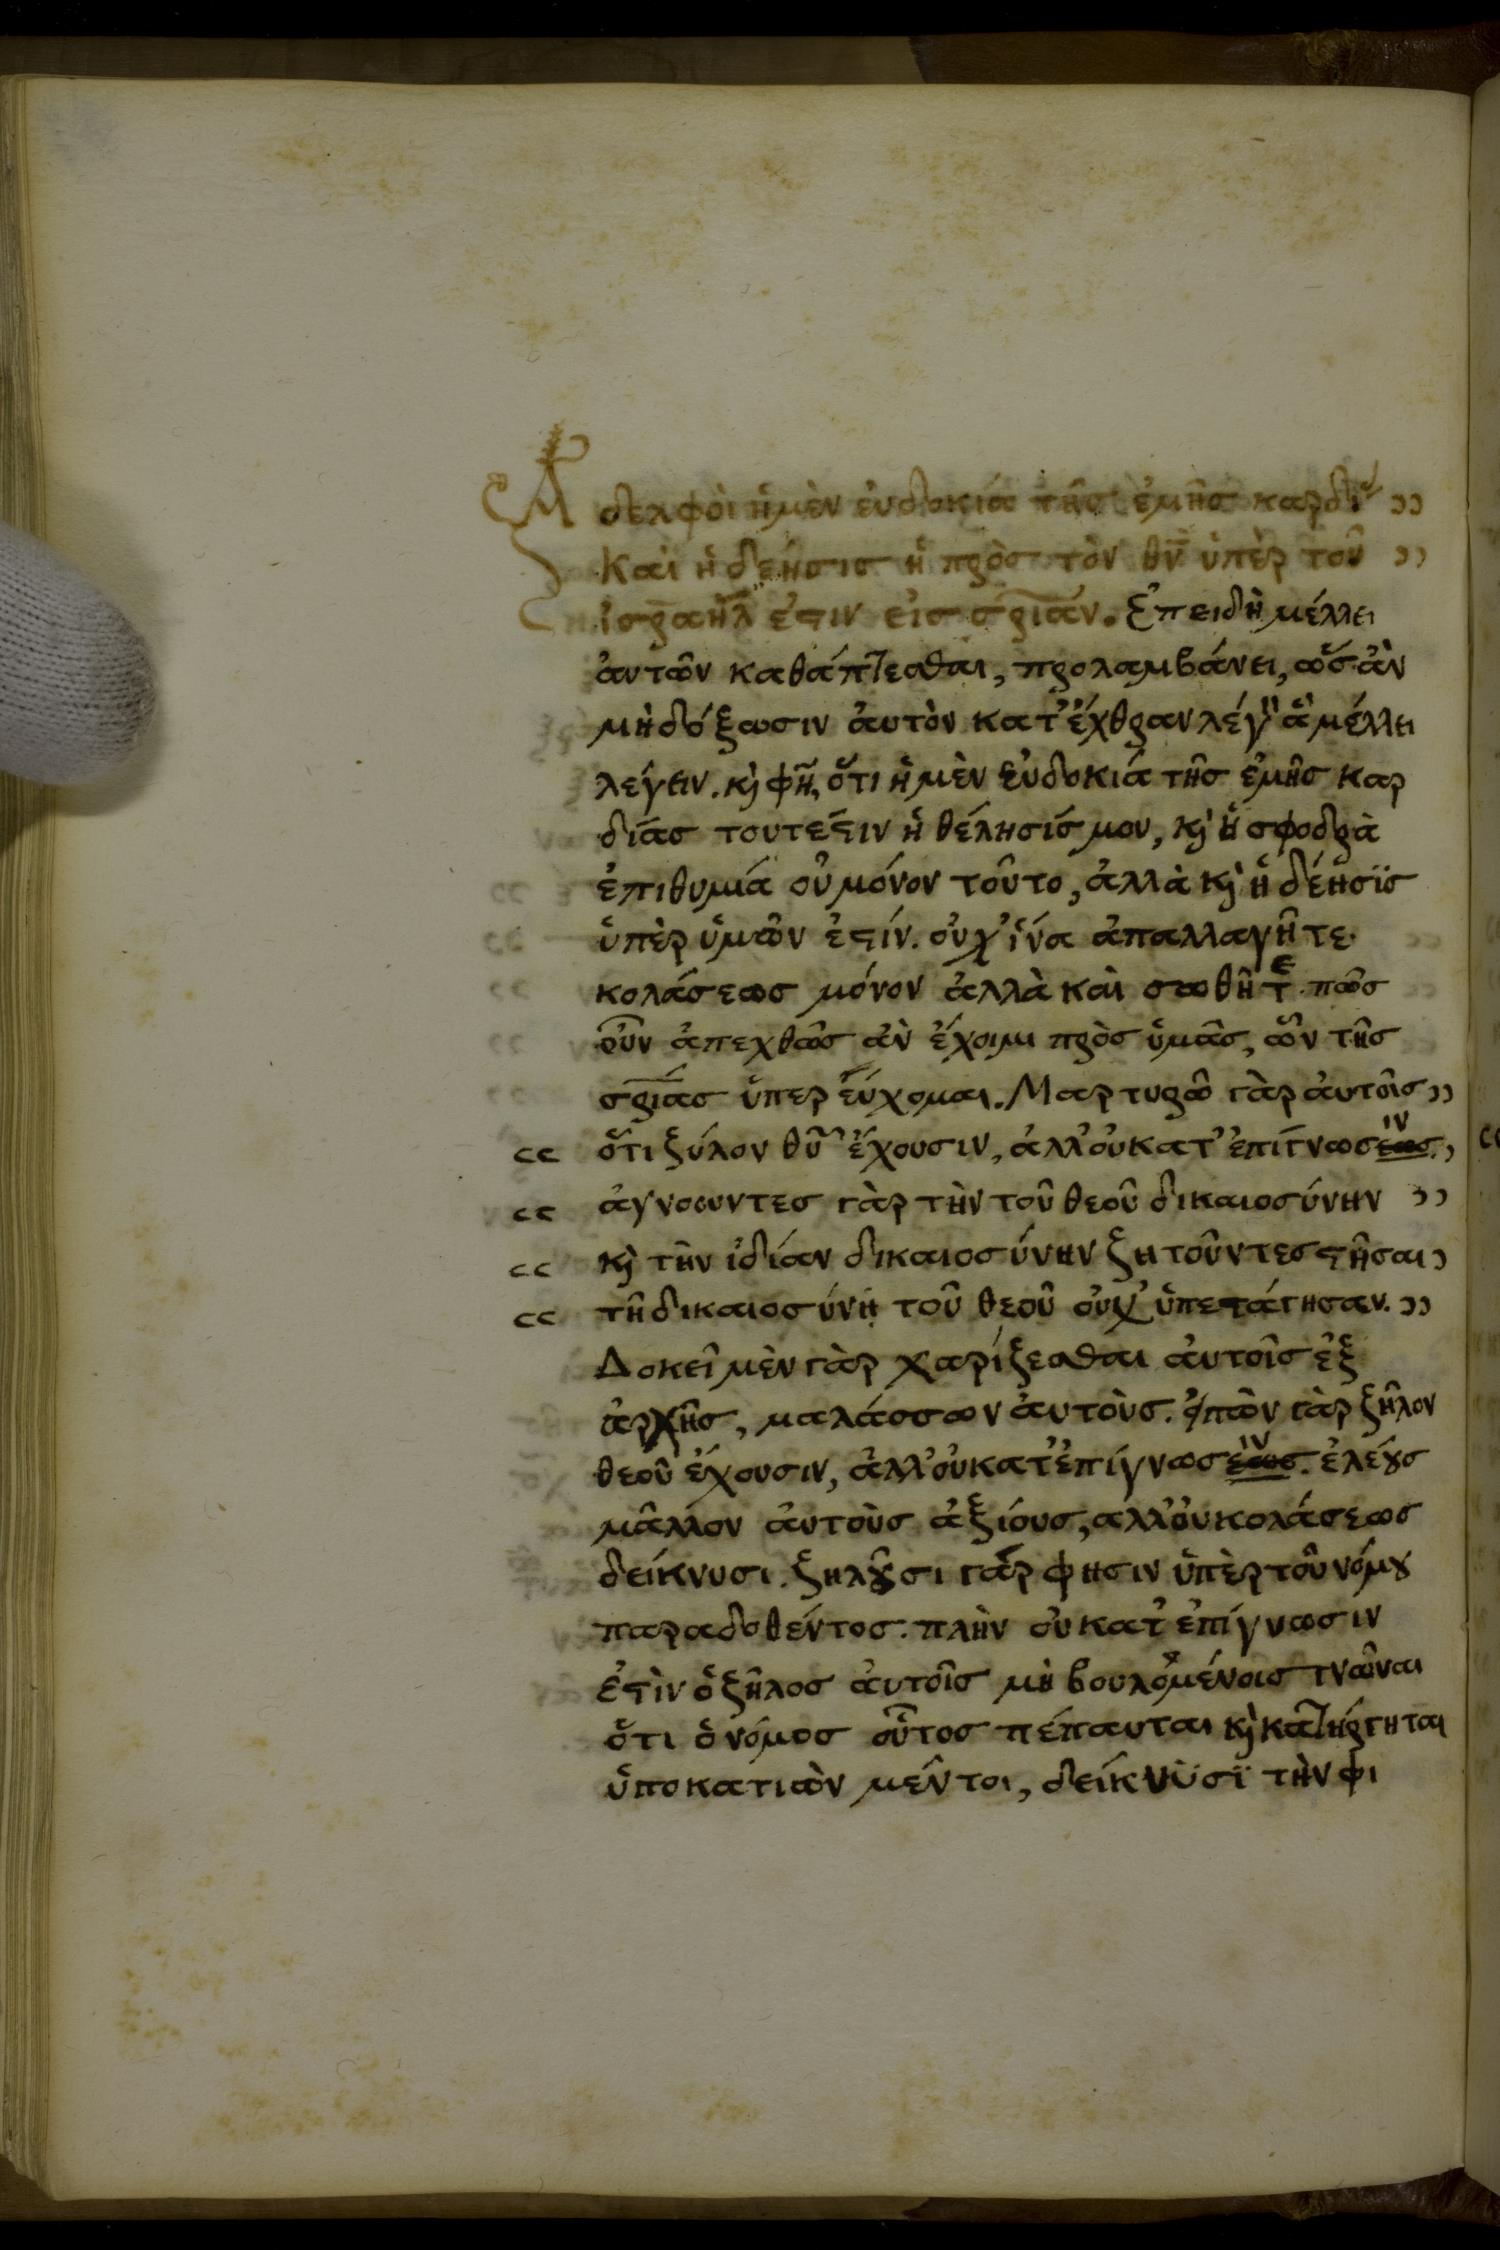 Ἀδελφὸι ἡ μὲν ἐυδοκιά τῆς ἐμῆς καρδι ))
Καὶ ἡ δεήσις ἡ πρὸς τὸν θν̅ ὑπὲρ τοῦ ))
ἰσραὴλ ἐϛιν εἰς σρ̅ιαν. Ἐπειδὴ μέλλει
ἀυτῶν καθάπτεσθαι, προλαμβάνει, ὥσ ἀν
μὴ δόξωσιν ἀυτὸν κατ' ἔχθραν λέγ ἃ μέλλει
λέγειν. κὶ φῆ, ὅτι ἡ μὲν ἐυδοκιά τῆς ἐμῆς καρ
διάς τουτέϛιν ἡ θέλησίς μου, κὶ ἡ σφοδρὰ
ἐπιθυμιά οὐ μόνον τοῦτο, ἀλλὰ κὶ ἡ δέησϊς
ὑπὲρ ὑμῶν ἐϛίν. οὐχ' ἱνα ἀπαλλαγῆτε
κολάσεως μόνον ἀλλὰ καὶ σωθῆτε. πῶς
οὖν ἀπεχθῶς ἀν ἔχοιμι πρὸς ὑμᾶς, ὧν τῆς
σρ̅ιας ὑπερ εὔχομαι. Μαρτυρῶ γὰρ ἀυτοῖς ))
cc ὅτι ξύλον θυ̅ ἔχουσιν, ἀλλ' οὐ κατ' ἐπίγνωσέως ιν ))
cc ἀγνοουντες γὰρ τὴν τοῦ θεοῦ δικαιοσύνην ))
cc κὶ τὴν ἰδίαν δικαιοσύνην ζητοῦντες ϛῆσαι )
cc τῆ δικαιοσύνη τοῦ θεοῦ οὐχ' ὑπετάγησαν. ))
Δοκεῖ μὲν γὰρ χαρίζεσθαι ἀυτοῖς ἐξ
ἀρχῆς, μαλάσσων ἀυτοὺς. ἐιπὼν γὰρ ζῆλον
θεοῦ ἔχουσιν, ἀλλ' οὐ κατ' ἐπίγνωσέως ιν. ἐλέȣς
μᾶλλον ἀυτοὺς ἀξιόυς, αλλ' οὐ κολάσεως
δείκνυσι. ζηλȣσι γὰρ φησιν ὑπὲρ τοῦ νόμȣ
παραδοθέντος. πλὴν οὐ κατ' ἐπίγνωσιν
ἐϛὶν ὁ ζῆλος ἀυτοῖς μὴ βουλομένοις γνῶναι
ὅτι ὁ νόμος οὗτος πέπαυται κὶ κατήργηται
ὑποκατιὼν μέντοι, δείκνϋσϊ τὴν φι